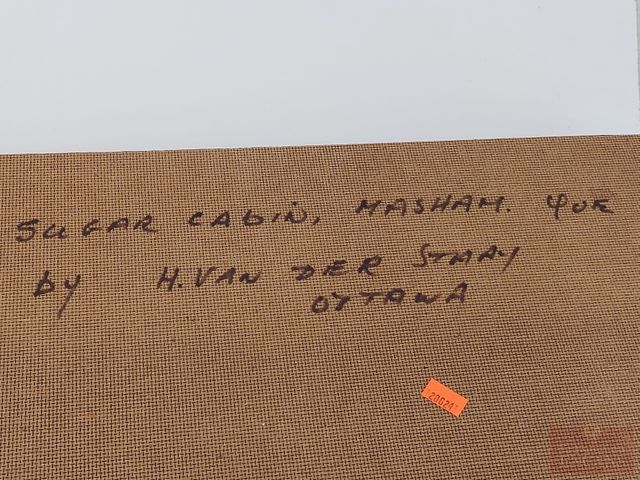 SUGAR CABIN, MASHAM. QUE
by H. VAN DER STMAY
OTTAWA
20624